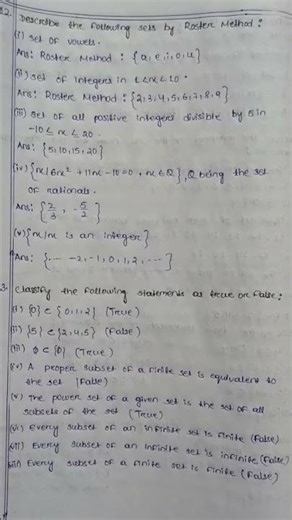 2. Describe the following sets by Roster Method :
(i) set of vowels.
Ans: Roster Method : {a, e, i, o, u}
(ii) set of integers in 1<x<10.
Ans: Roster Method : {2,3,4,5,6,7,8,9}
(iii) set of all positive integers divisible by 5 in
-10 ≤ x ≤ 20.
Ans: {5,10,15,20}
(iv) {x/6x² + 11x -10=0, x∈Q}, Q being the set
of rationals.
Ans: {2/3, -5/2}
(v) {x/x is an integer}
Ans: {... -2, -1, 0, 1, 2, ...}
3. Classify the following statements as true or False:
(i) {0} ⊂ {0,1,2} (True)
(ii) {5} ⊂ {2,4,5} (False)
(iii) φ ⊂ {0} (True)
(iv) A proper subset of a finite set is equivalent to
the set (False)
(v) The power set of a given set is the set of all
subsets of the set (True)
(vi) Every subset of an infinite set is finite (False)
(vii) Every subset of an infinite set is infinite (False)
(viii) Every subset of a finite set is finite (False)